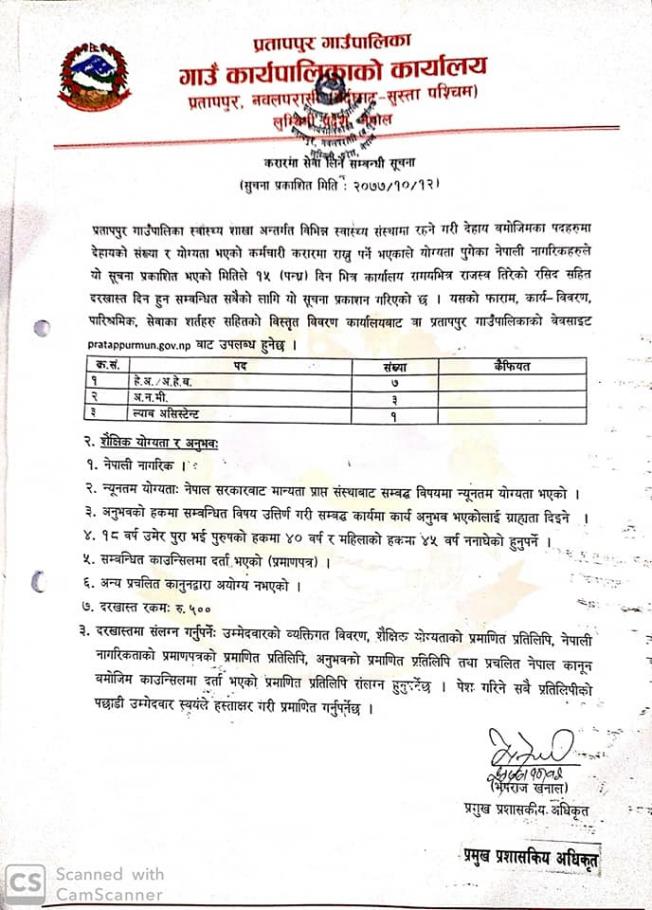 प्रतापपुर गाउँपालिका
गाउँ कार्यपालिकाको कार्यालय
प्रतापपुर, नवलपरासी (बर्दघाट-सुस्ता पश्चिम)
लुम्बिनी प्रदेश, नेपाल
करारमा सेवा लिने सम्बन्धी सूचना
(सुचना प्रकाशित मिति : २०७७/१०/१२)
प्रतापपुर गाउँपालिका स्वास्थ्य शाखा अन्तर्गत विभिन्न स्वास्थ्य संस्थामा रहने गरी देहाय बमोजिमका पदहरुमा
देहायको संख्या र योग्यता भएको कर्मचारी करारमा राख्नु पर्ने भएकाले योग्यता पुगेका नेपाली नागरिकहरुले
यो सूचना प्रकाशित भएको मितिले १५ (पन्ध्र) दिन भित्र कार्यालय समयभित्र राजस्व तिरेको रसिद सहित
दरखास्त दिन हुन सम्बन्धित सबैको लागि यो सूचना प्रकाशन गरिएको छ । यसको फाराम, कार्य-विवरण,
पारिश्रमिक, सेवाका शर्तहरु सहितको विस्तृत विवरण कार्यालयबाट वा प्रतापपुर गाउँपालिकाको वेवसाइट
pratappurmun.gov.np बाट उपलब्ध हुनेछ ।
क.सं. पद संख्या कैफियत
१ हे.अ./अ.हे.ब. ७
२ अ.न.मी. ३
३ ल्याब असिस्टेन्ट १
२. शैक्षिक योग्यता र अनुभवः
१. नेपाली नागरिक ।
२. न्यूनतम योग्यताः नेपाल सरकारबाट मान्यता प्राप्त संस्थाबाट सम्बद्ध विषयमा न्यूनतम योग्यता भएको ।
३. अनुभवको हकमा सम्बन्धित विषय उत्तिर्ण गरी सम्बद्ध कार्यमा कार्य अनुभव भएकोलाई ग्राह्यता दिइने ।
४. १८ वर्ष उमेर पुरा भई पुरुषको हकमा ४० वर्ष र महिलाको हकमा ४५ वर्ष ननाघेको हुनुपर्ने ।
५. सम्बन्धित काउन्सिलमा दर्ता भएको (प्रमाणपत्र) ।
६. अन्य प्रचलित कानुनद्वारा अयोग्य नभएको ।
७. दरखास्त रकमः रु.५००
३. दरखास्तमा संलग्न गर्नुपर्नेः उम्मेदवारको व्यक्तिगत विवरण, शैक्षिक योग्यताको प्रमाणित प्रतिलिपि, नेपाली
नागरिकताको प्रमाणपत्रको प्रमाणित प्रतिलिपि, अनुभवको प्रमाणित प्रतिलिपि तथा प्रचलित नेपाल कानून
बमोजिम काउन्सिलमा दर्ता भएको प्रमाणित प्रतिलिपि संलग्न हुनुपर्नेछ । पेश गरिने सबै प्रतिलिपीको
पछाडी उम्मेदवार स्वयंले हस्ताक्षर गरी प्रमाणित गर्नुपर्नेछ ।
(भेषराज खनाल)
प्रमुख प्रशासकीय अधिकृत
प्रमुख प्रशासकिय अधिकृत
CS Scanned with
CamScanner